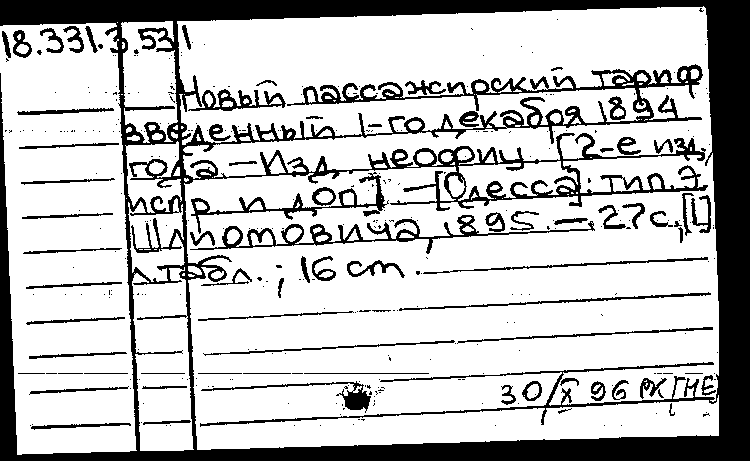 18.331.3.531
Новый пассажирский тариф
введенный 1-го декабря 1894
года. — Изд. неофиц. [2-е изд.,
испр. и доп.] — [Одесса]: тип. Э.
Шлиомовича, 1895. — 27 с., [1]
л. табл. ; 16 cm.
30/X 96 РК[НЕ]